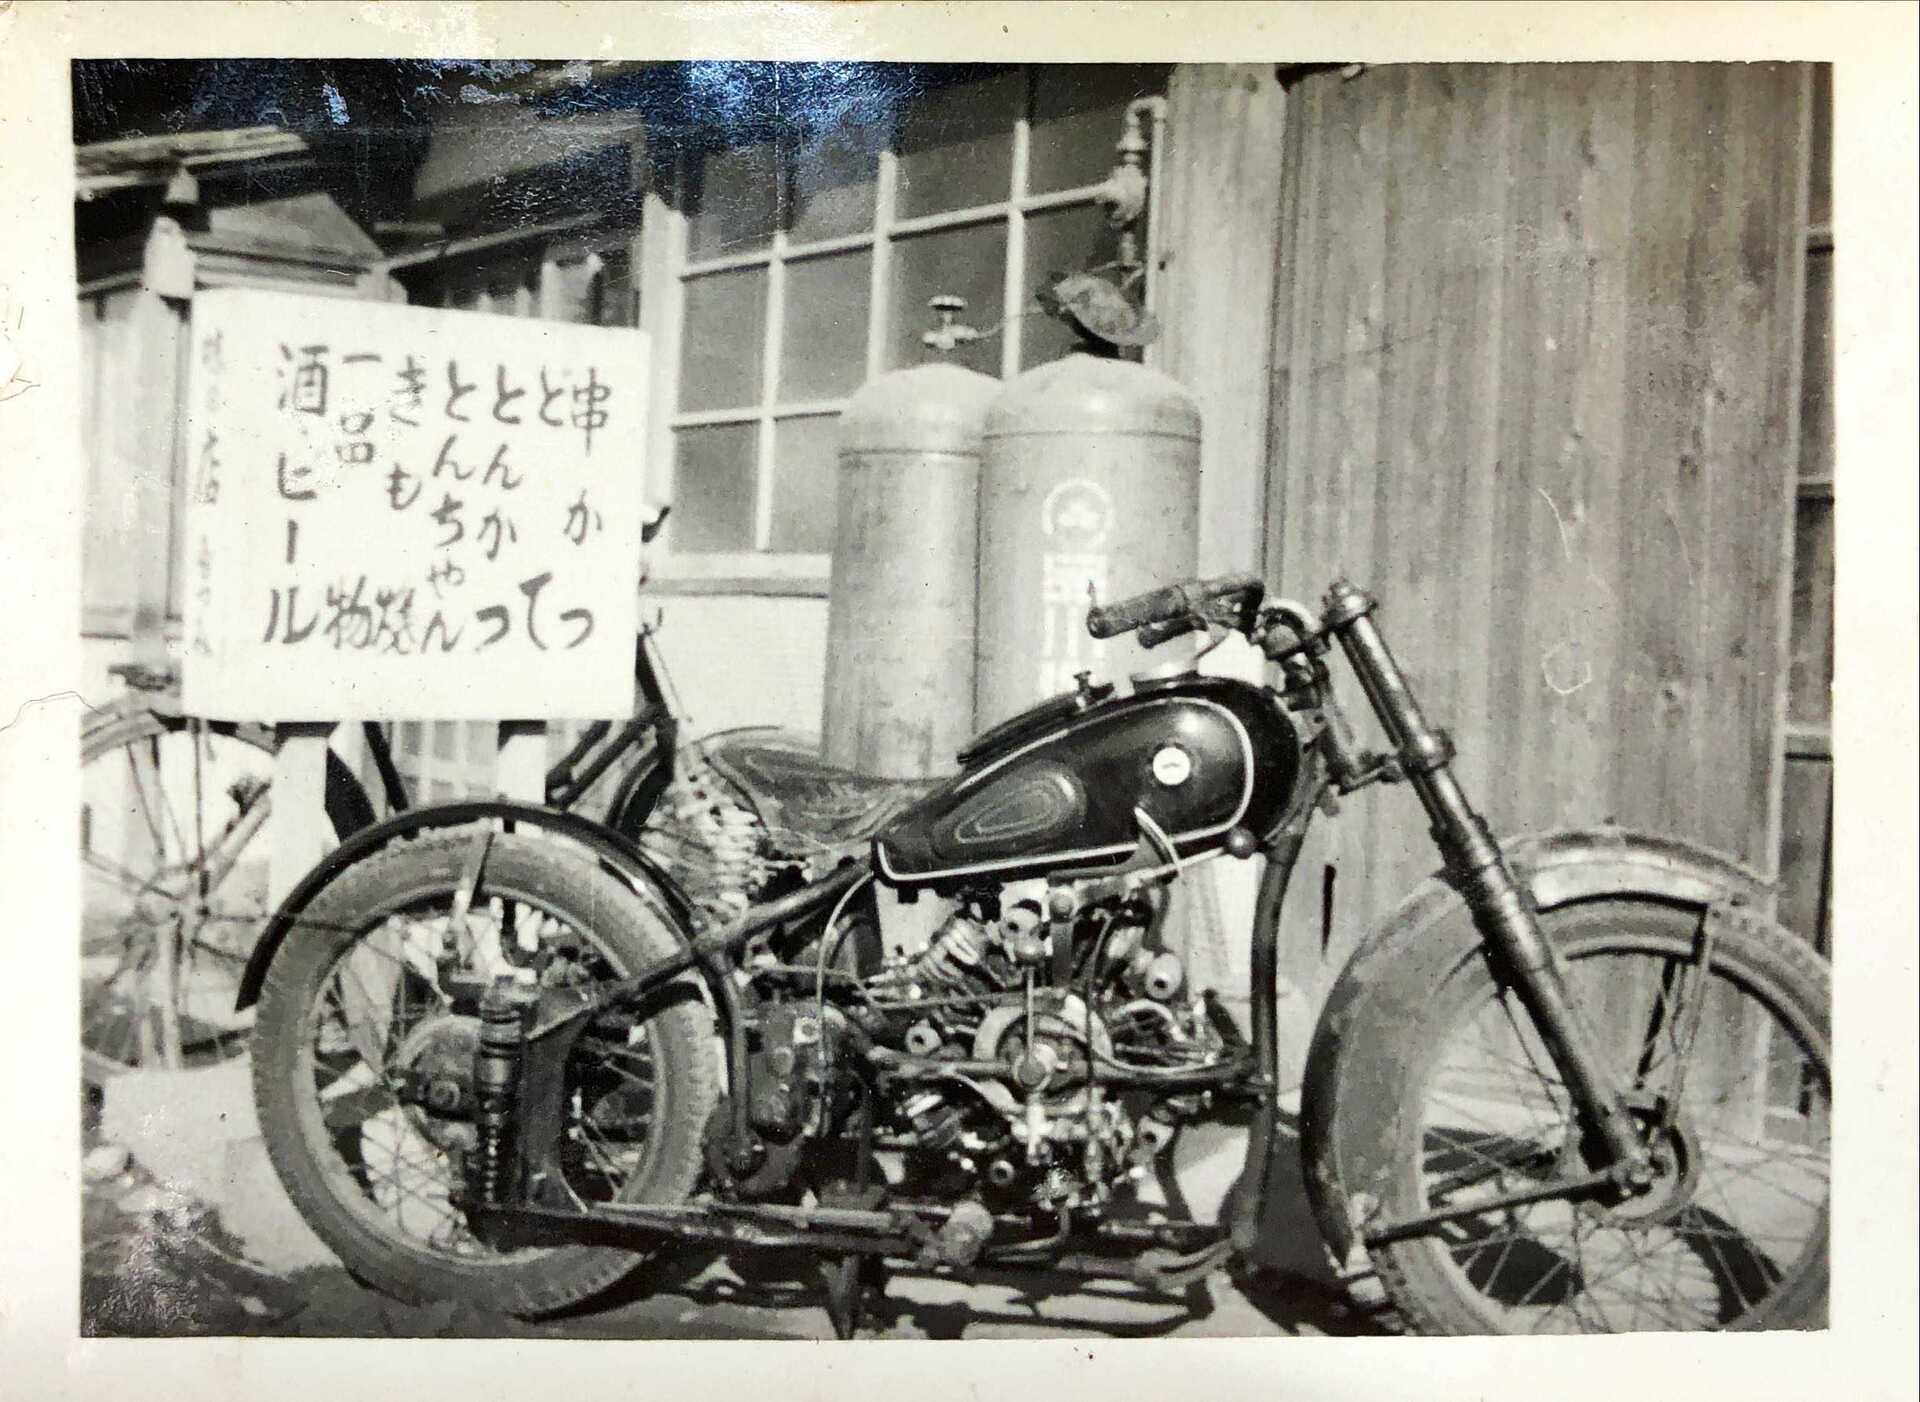 串かつ
どて
とんかつ
とんちゃん
きも焼
一品物
酒、ビール